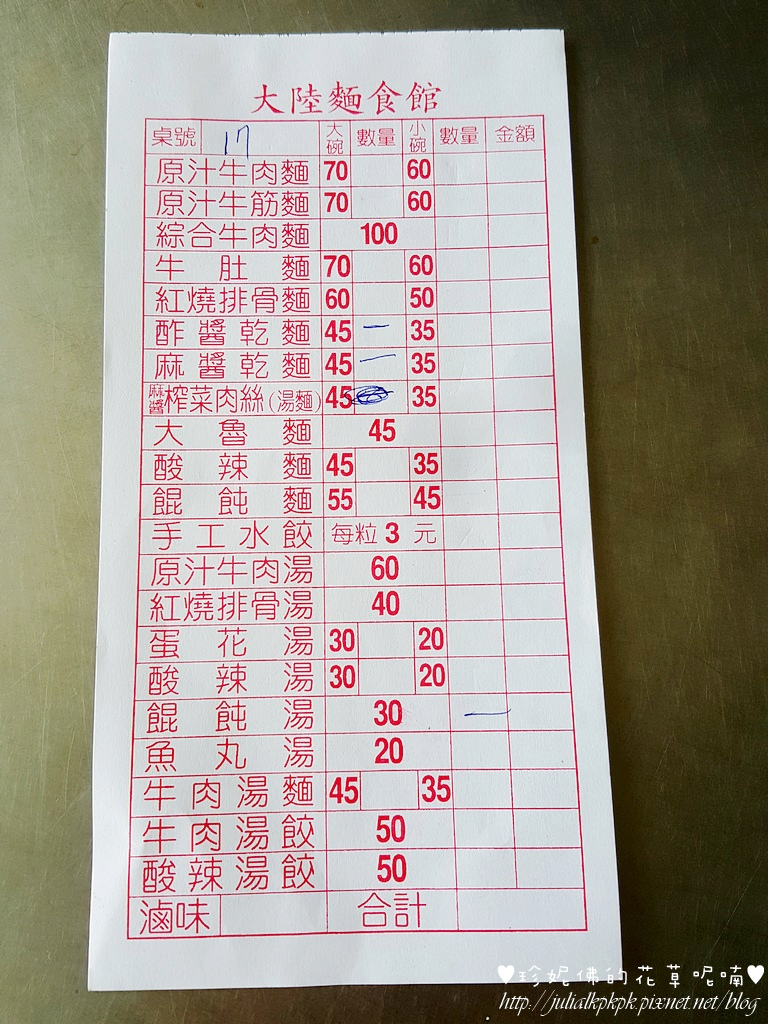 大陸麵食館
桌號 17 大碗 數量 小碗 數量 金額
原汁牛肉麵 70 60
原汁牛筋麵 70 60
綜合牛肉麵 100
牛肚麵 70 60
紅燒排骨麵 60 50
酢醬乾麵 45 一 35
麻醬乾麵 45 一 35
麻醬榨菜肉絲(湯麵) 45 35
大魯麵 45
酸辣麵 45 35
餛飩麵 55 45
手工水餃 每粒3元
原汁牛肉湯 60
紅燒排骨湯 40
蛋花湯 30 20
酸辣湯 30 20
餛飩湯 30 一
魚丸湯 20
牛肉湯麵 45 35
牛肉湯餃 50
酸辣湯餃 50
滷味 合計
♥珍妮佛的花草呢喃♥
http://julialkpkpk.pixnet.net/blog